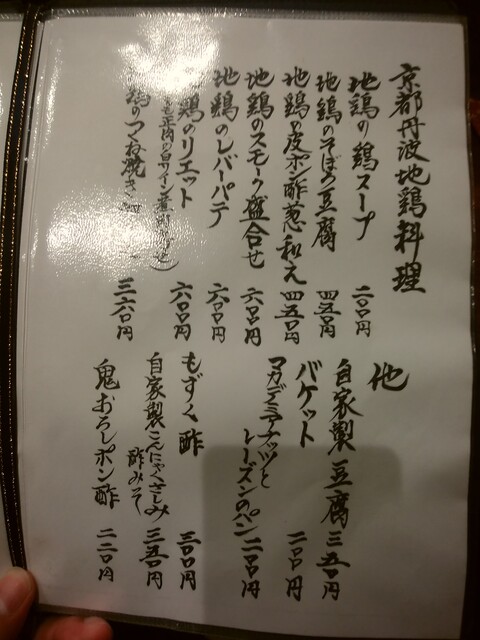 京都丹波地鶏料理
地鶏の鶏スープ 二〇〇円
地鶏のそぼろ豆腐 四五〇円
地鶏の皮ポン酢葱和え 四五〇円
地鶏のスモーク盛合せ 六〇〇円
地鶏のレバーパテ 六〇〇円
鶏のリエット 六〇〇円
鶏のつくね焼き 三六〇円
他
自家製豆腐 三五〇円
バケット 二〇〇円
マカデミアナッツと
レーズンのパン 二〇〇円
もずく酢 三〇〇円
自家製こんにゃくさしみ
酢みそ 三五〇円
鬼おろしポン酢 二二〇円